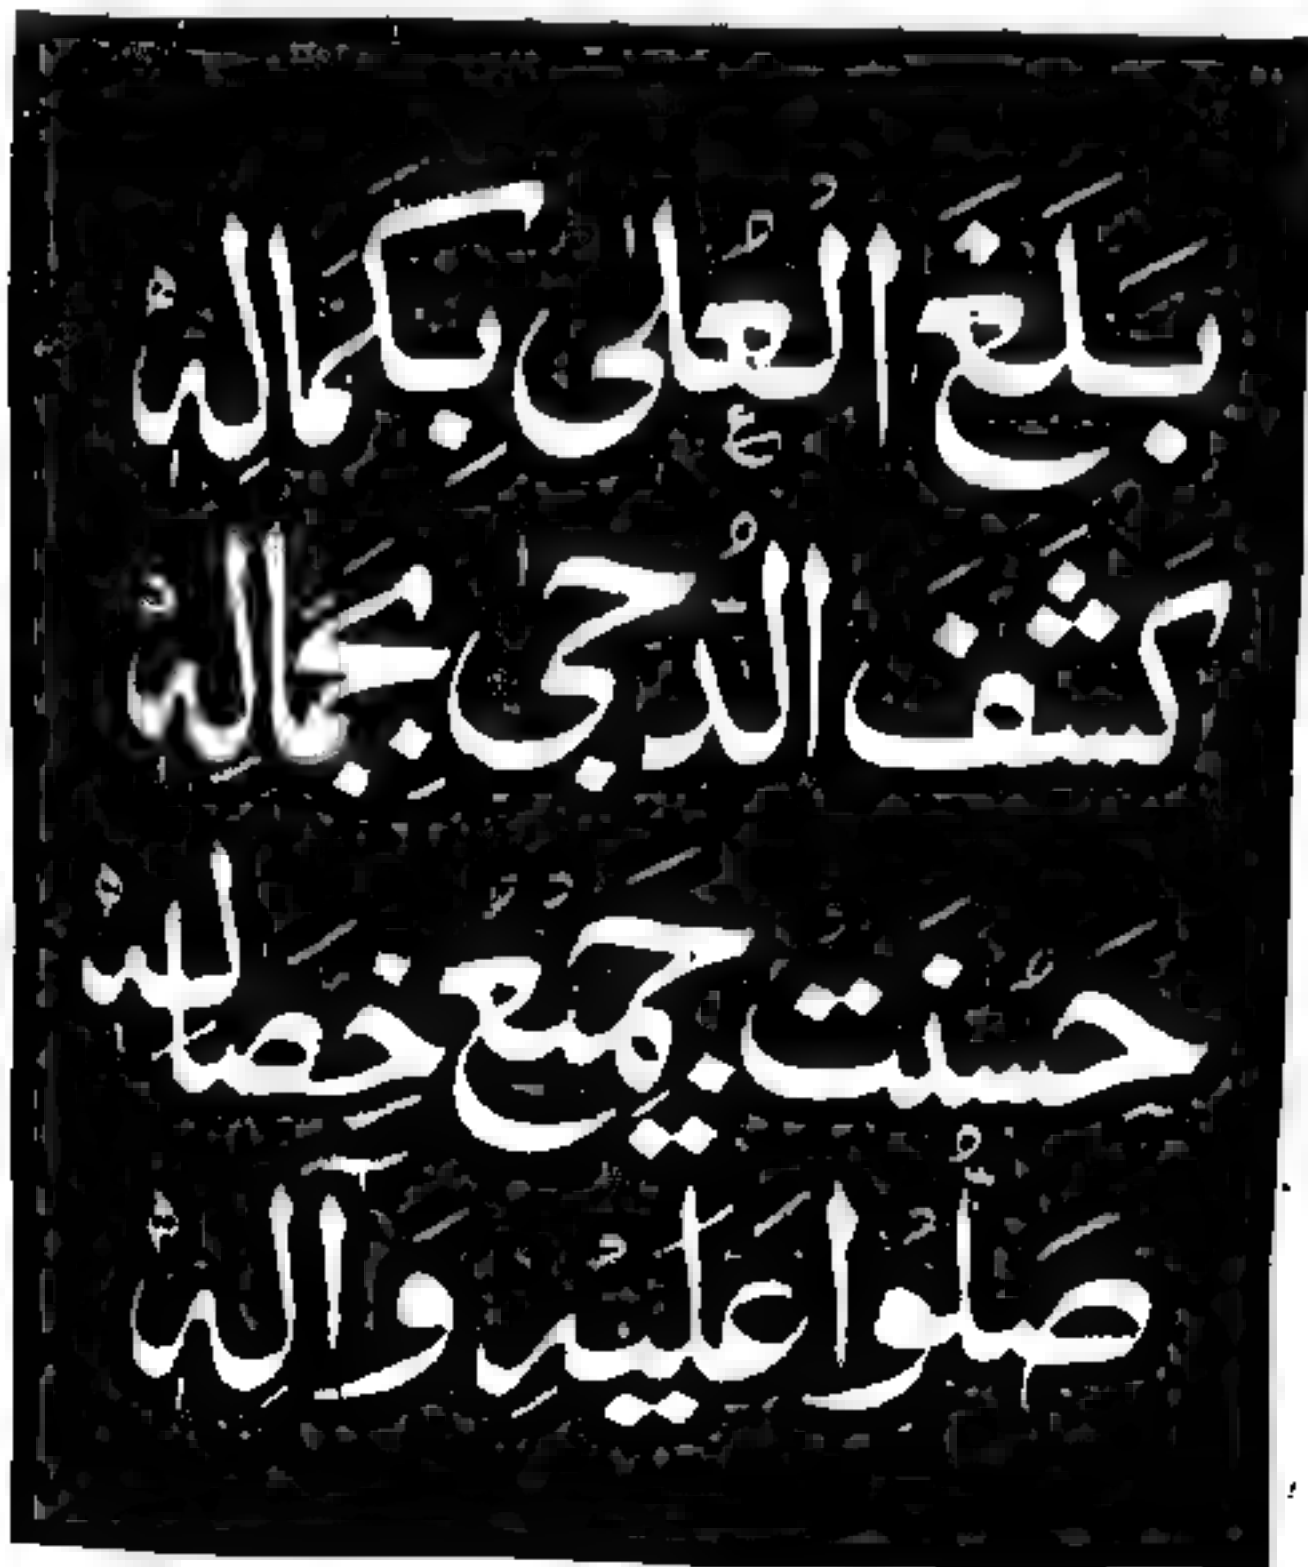 بَلَغَ الْعُلٰى بِكَمَالِهٖ
كَشَفَ الدُّجٰى بِجَمَالِهٖ
حَسُنَتْ جَمِيْعُ خِصَالِهٖ
صَلُّوْا عَلَيْهِ وَآلِهٖ